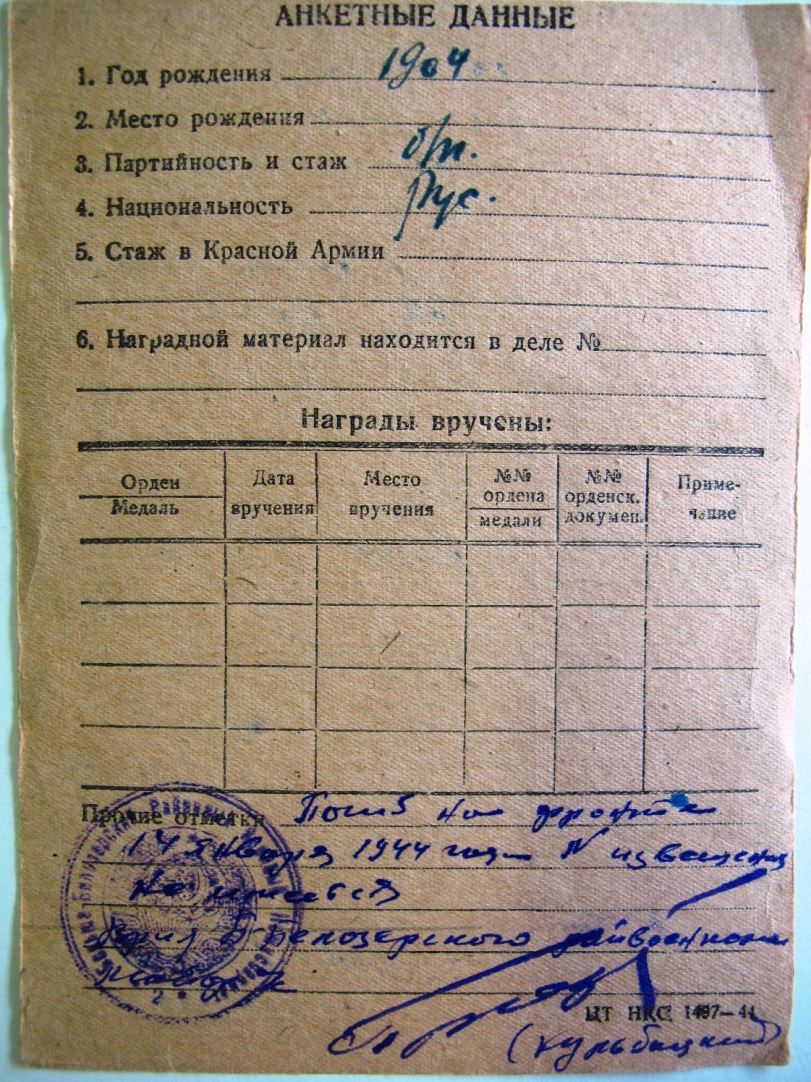 АНКЕТНЫЕ ДАННЫЕ
1. Год рождения 1904
2. Место рождения
3. Партийность и стаж б/п.
4. Национальность Рус.
5. Стаж в Красной Армии
6. Наградной материал находится в деле №
Награды вручены:
Орден
Медаль
Дата вручения
Место вручения
№№ ордена
медали
№№ орденск. докумен.
Приме-
чание
Прочие отметки Погиб на фронте
14 января 1944 года N извещения
не имеется
Белозерского райвоенкома
ЦТ НКС 1497—44
(Кульбицкий)